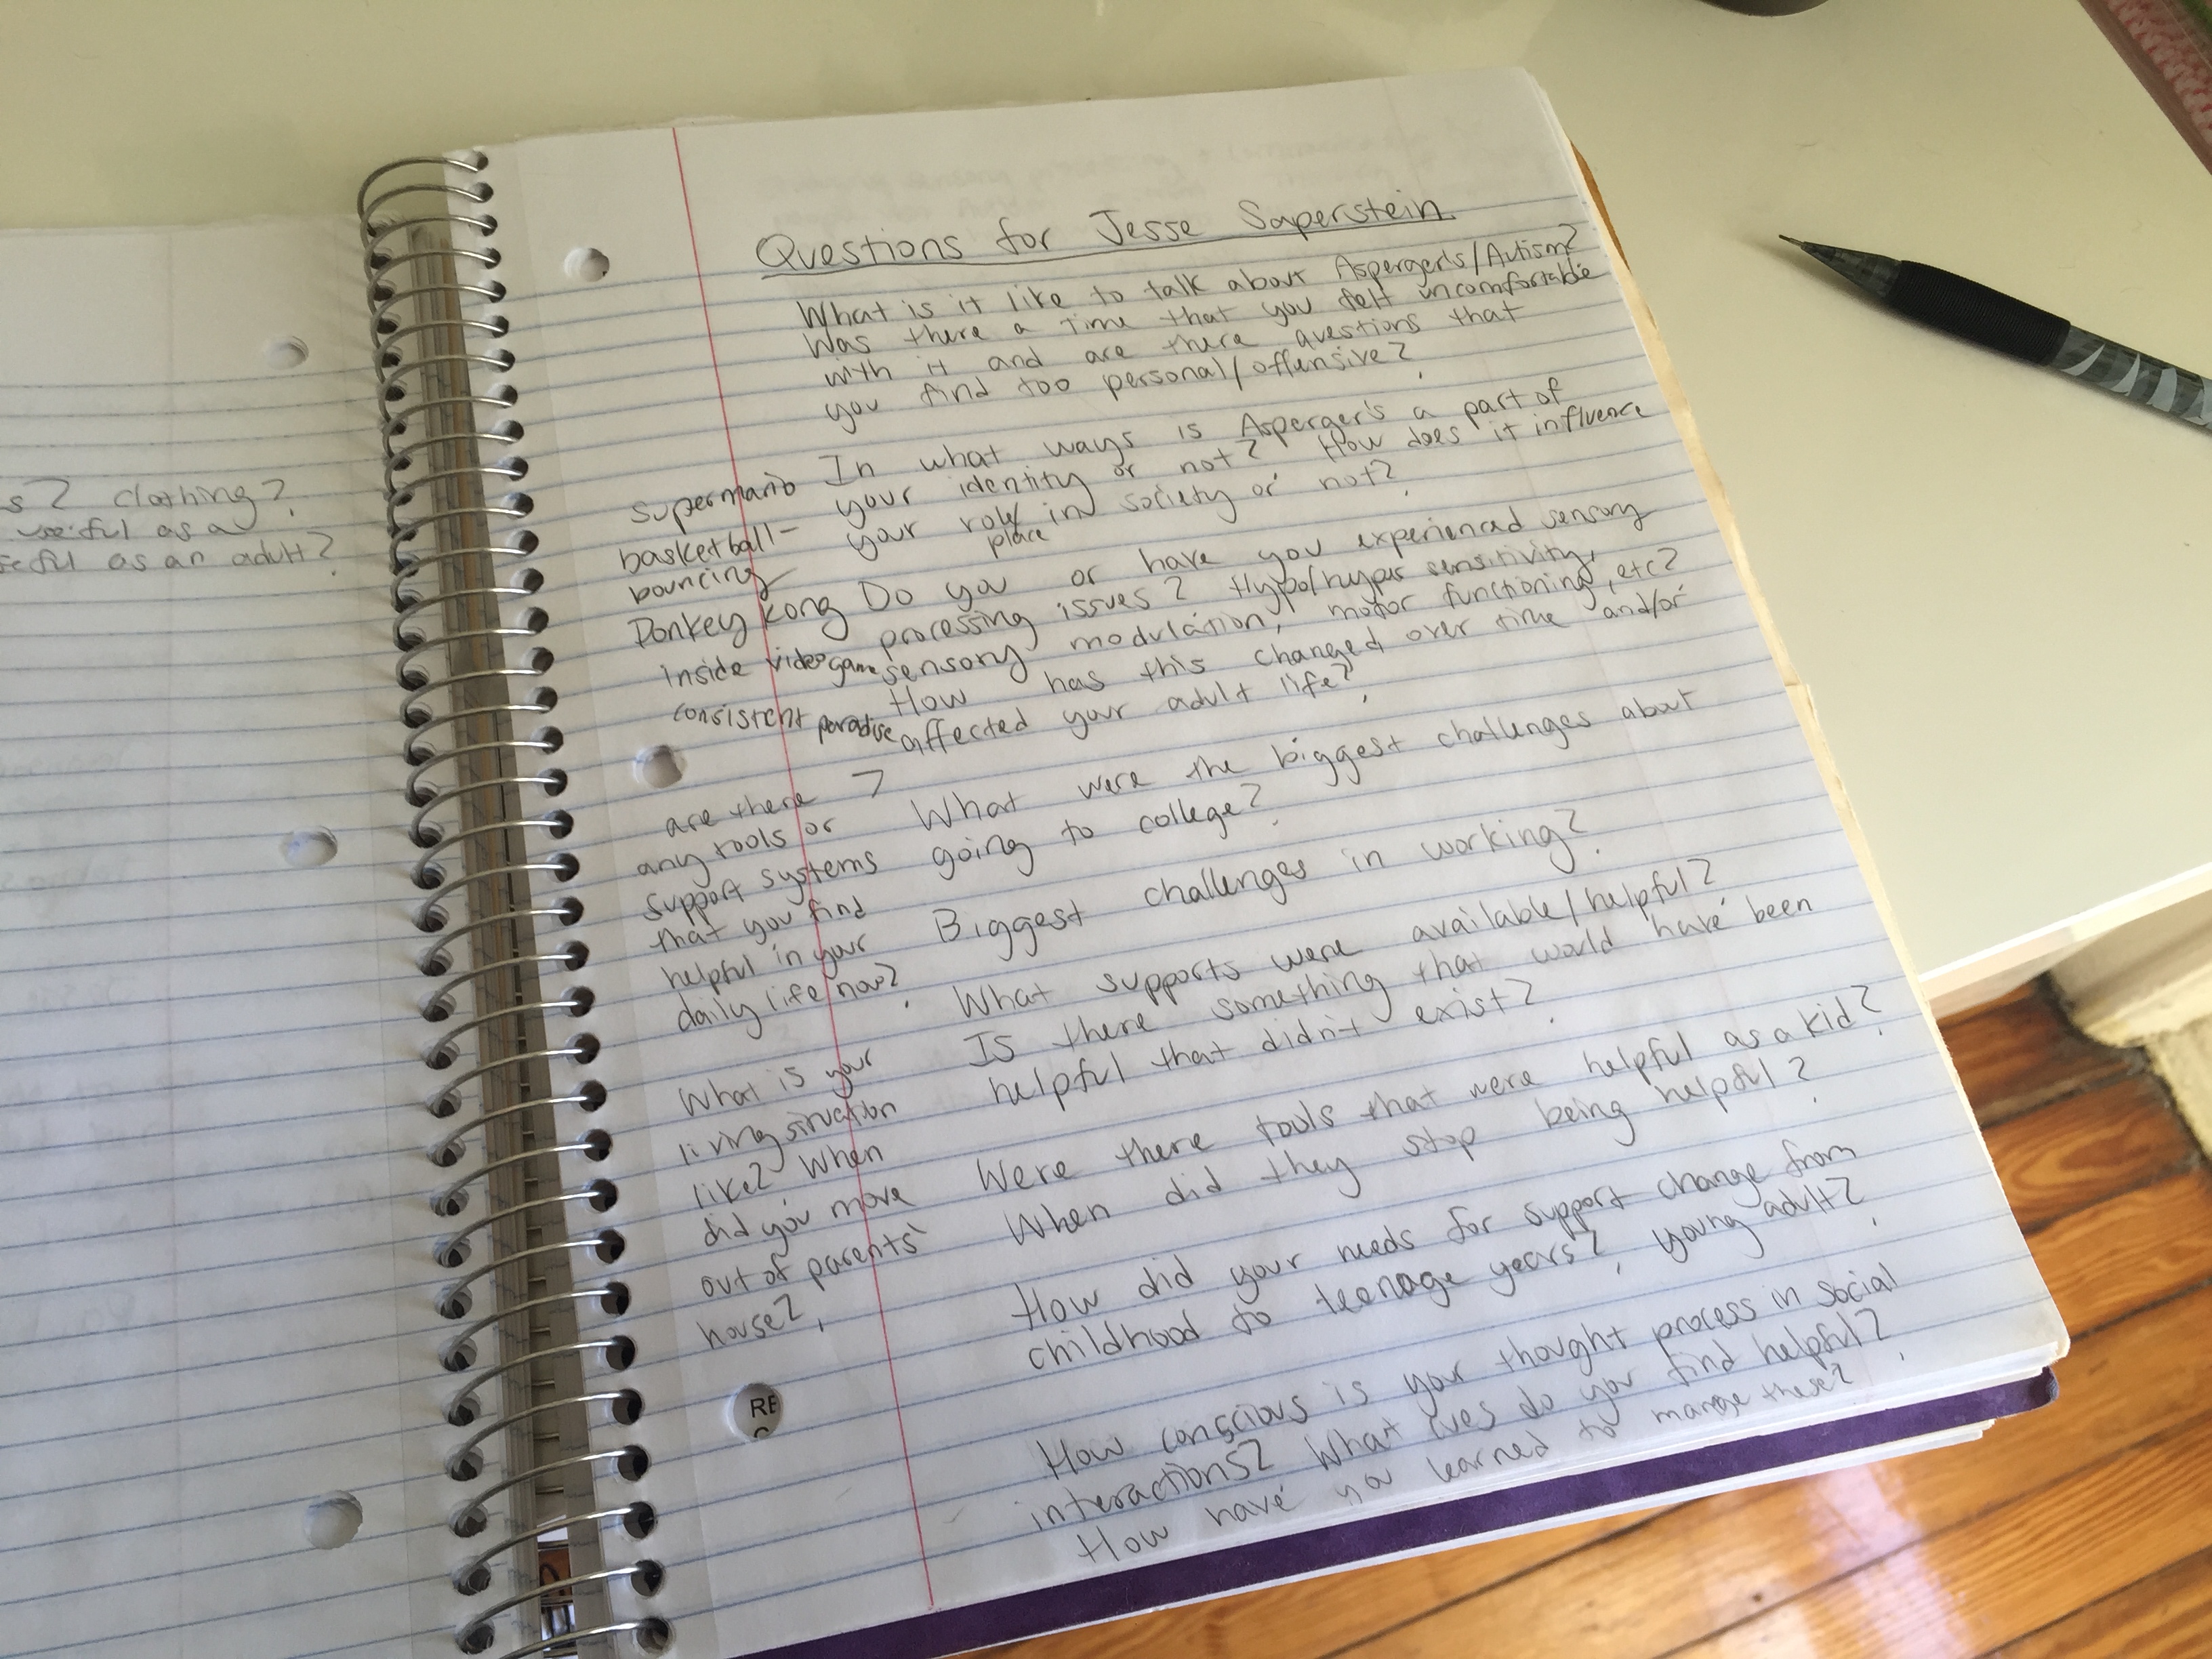 s? clothing?
useful as a
useful as an adult?
Questions for Jesse Saperstein
What is it like to talk about Asperger's/Autism?
Was there a time that you felt uncomfortable
with it and are there questions that
you find too personal/offensive?
In what ways is Asperger's a part of
your identity or not? How does it influence
your role/ in society or not?
place
Do you or have you experienced sensory
processing issues? Hypo/hyper sensitivity,
sensory modulation, motor functioning, etc?
How has this changed over time and/or
affected your adult life?
supermario
basketball-
bouncing
Donkey Kong
inside video game
consistent paradise
What were the biggest challenges about
going to college?
Biggest challenges in working?
What supports were available/helpful?
Is there something that would have been
helpful that didn't exist?
Were there tools that were helpful as a kid?
When did they stop being helpful?
How did your needs for support change from
childhood to teenage years?, young adult?
How conscious is your thought process in social
interactions? What cues do you find helpful?
How have you learned to manage these?
are there
any tools or
support systems
that you find
helpful in your
daily life now?
What is your
living situation
like? When
did you move
out of parents'
house?
RE